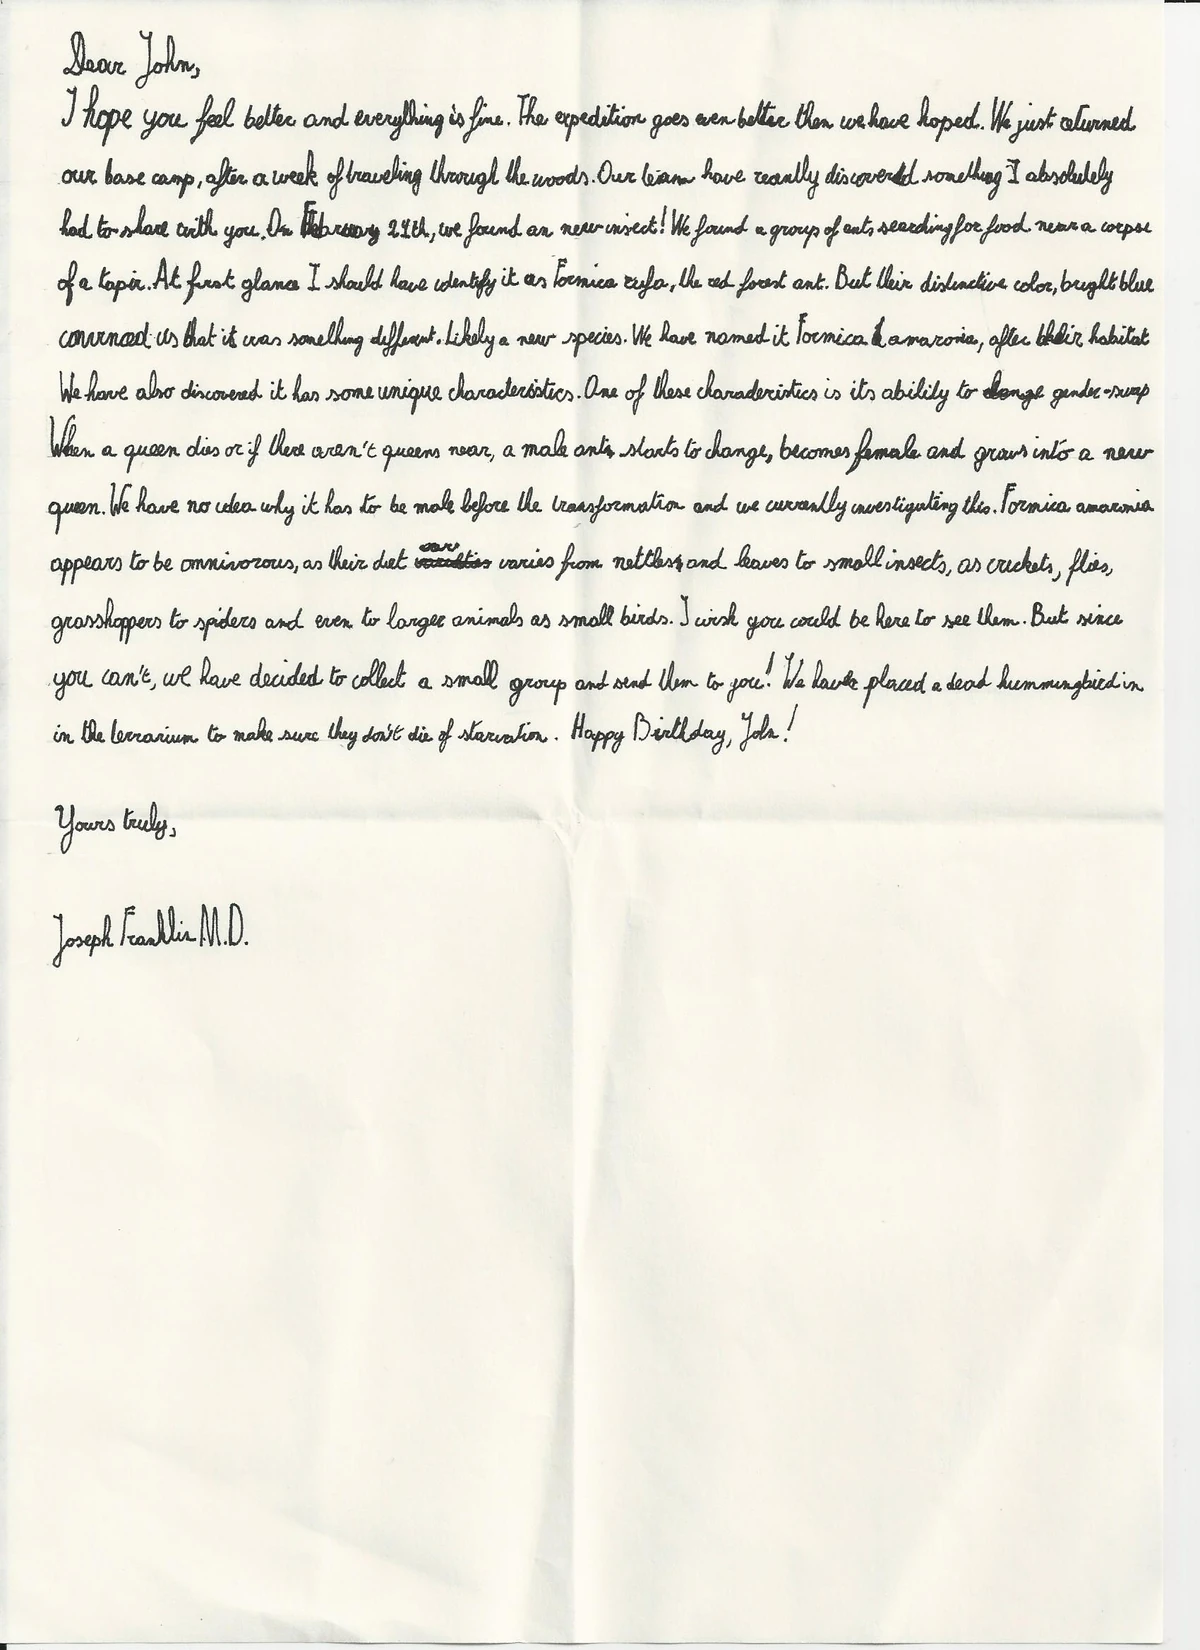 Dear John,
I hope you feel better and everything is fine. The expedition goes even better then we have hoped. We just returned
our base camp, after a week of traveling through the woods. Our team have recently discovered something I absolutely
had to share with you. On February th, we found an new insect! We found a group of ants searching for food near a corpse
of a tapir. At first glance I should have identify it as Formica rufa, the red forest ant. But their distinctive color, bright blue
convinced us that it was something different. Likely a new species. We have named it Formica amazonia, after their habitat
We have also discovered it has some unique characteristics. One of these characteristics is its ability to change gender-swap
When a queen dies or if there aren't queens near, a male ant starts to change, becomes female and grows into a new
queen. We have no idea why it has to be male before the transformation and we currently investigating this. Formica amazonia
appears to be omnivorous, as their diet varies from nettles and leaves to small insects, as crickets, flies,
grasshoppers to spiders and even to larger animals as small birds. I wish you could be here to see them. But since
you can't, we have decided to collect a small group and send them to you! We have placed a dead hummingbird in
in the terrarium to make sure they don't die of starvation. Happy Birthday, John!
Yours truly,
Joseph Franklin M.D.